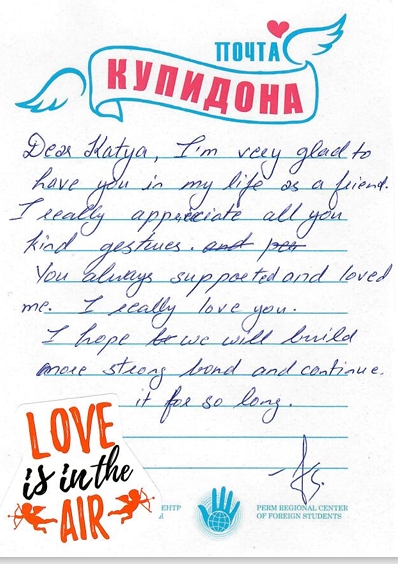 ПОЧТА
КУПИДОНА
Dear Katya, I'm very glad to
have you in my life as a friend.
I really appreciate all you
kind gestures. and per
You always suppoeted and loved
me. I really love you.
I hope we will build
more strong bond and continue.
it for so long.
LOVE
is in the
AIR
ЕНТР
PERM REGIONAL CENTER
OF FOREIGN STUDENTS